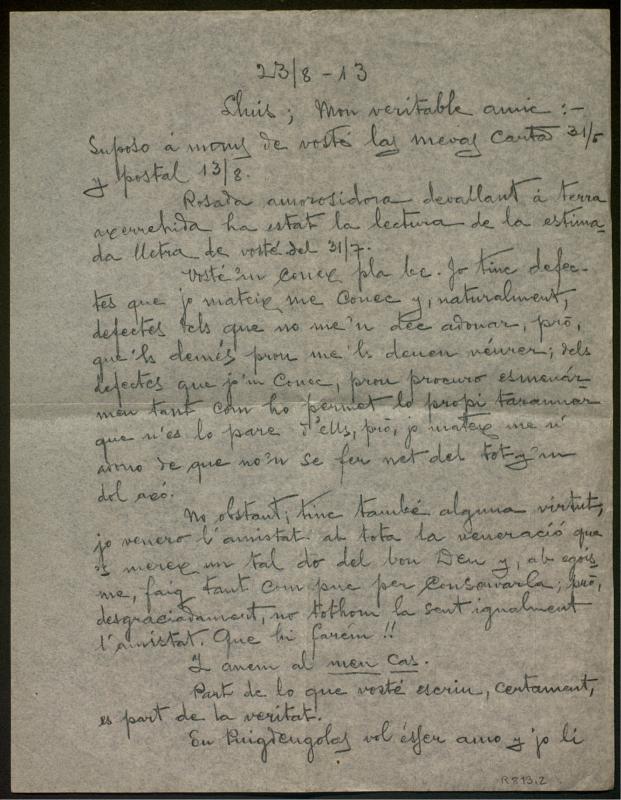 23/8 - 13
Lluis; Mon veritable amic :-
Suposo á mans de vosté las mevas cartas 31/5
y postal 13/8.
Rosada amorosidora devallant á terra
axerrehida ha estat la lectura de la estima-
da lletra de vosté del 31/7.
Vosté 'm conex pla be. Jo tinc defec-
tes que jo mateix me conec y, naturalment,
defectes dels que no me 'n dec adonar, pró,
que 'ls demés prou me 'ls deuen véurer; dels
defectes que jo 'm conec, prou procuro esmenár-
men tant com ho permet lo propi tarannar
que n'es lo pare d'ells, pró, jo mateix me n'
adono de que no 'n se fer net del tot y 'm
dol axó.
No obstant, tinc també alguna virtut;
jo venero l'amistat ab tota la veneració que
's merex un tal do del bon Deu y, ab egois-
me, faig tant com puc per conservarla; pró,
desgraciadament, no tothom la sent igualment
l'amistat. Que hi farém !!
I anem al meu cas.
Part de lo que vosté escriu, certament,
es part de la veritat.
En Puigdengolas vol ésser amo y jo li
R 813.2